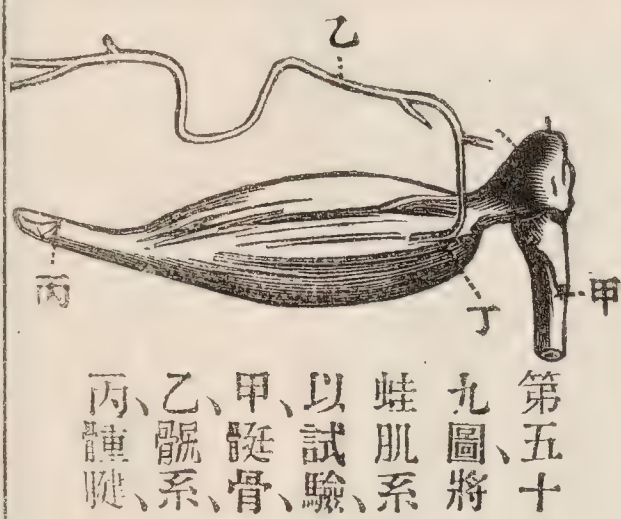 乙
丙
丁
甲
第五十
九圖、將
蛙肌系
以試驗、
甲、骨、
乙、系、
丙、腱、